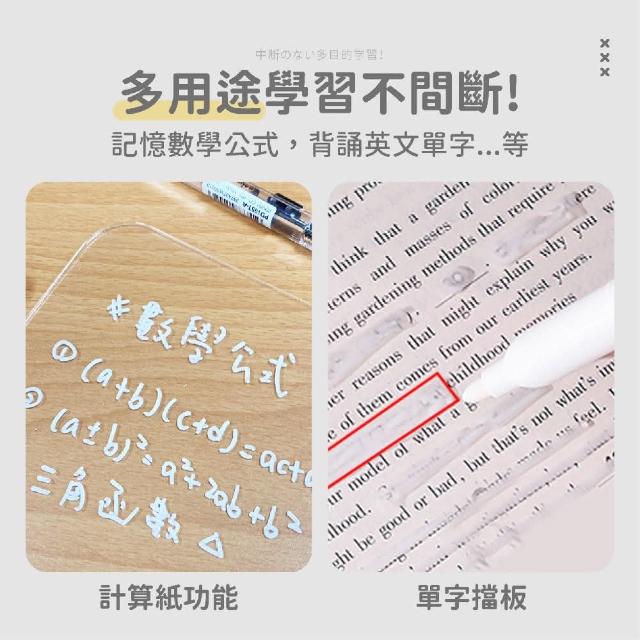 中断のない多目的学習!
多用途學習不間斷!
記憶數學公式，背誦英文單字...等
*數學公式
① (a+b)(c+d)=ac+a
② (a±b)²=a²±2ab+b²
三角函數△
think that a garden
and masses of color
ng gardening methods that require
might explain why you w
er reasons that
e of them comes from our earliest years.
childhood memories
ur model of what a g
but that's not what's im
hood.
ght be good or bad,
計算紙功能
單字擋板